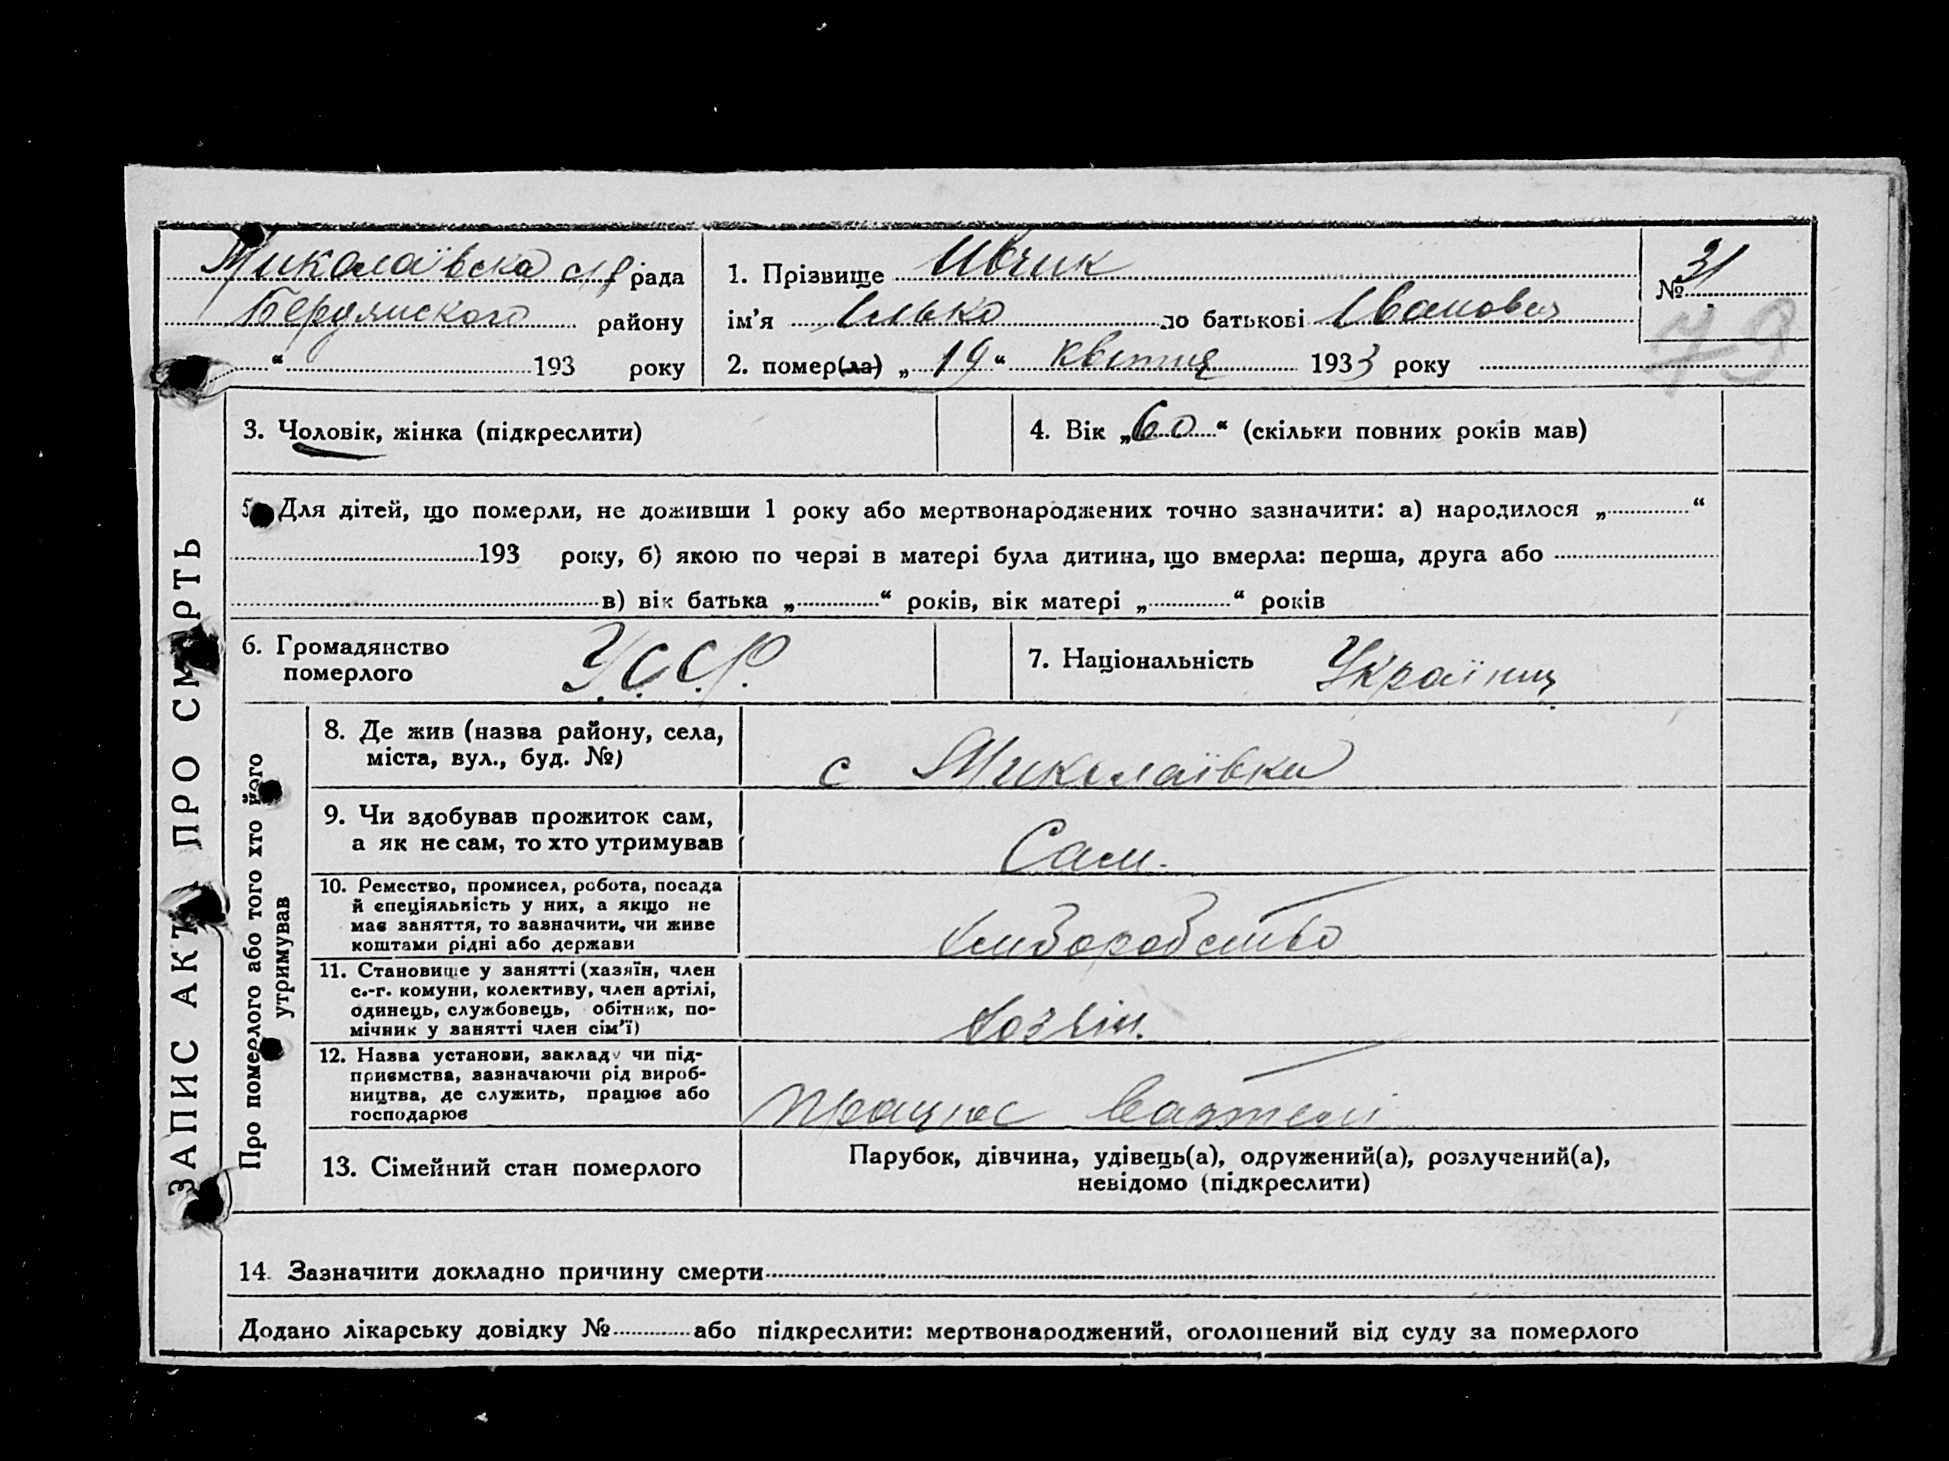 ЗАПИС АКТ ПРО СМЕРТЬ
Миколаївска с/р рада
Бердянского району
“ 193 року
1. Прізвище Ивчик
ім’я Ілько по батькові Іванович
2. помер(ла) „19“ квітня 1933 року
№ 31
79
3. Чоловік, жінка (підкреслити)
4. Вік „60“ (скільки повних років мав)
5. Для дітей, що померли, не доживши 1 року або мертвонароджених точно зазначити: а) народилося „ “
193 року, б) якою по черзі в матері була дитина, що вмерла: перша, друга або
в) вік батька „ “ років, вік матері „ “ років
6. Громадянство
померлого
У.С.С.Р.
7. Національність Українц
Про померлого або того хто його
утримував
8. Де жив (назва району, села,
міста, вул., буд. №)
с Миколаївка
9. Чи здобував прожиток сам,
а як не сам, то хто утримував
Сам.
10. Ремество, промисел, робота, посада
й спеціяльність у них, а якщо не
має заняття, то зазначити, чи живе
коштами рідні або держави
хліборобство
11. Становище у занятті (хазяїн, член
с.-г. комуни, колективу, член артілі,
одинець, службовець, обітник, по-
мічник у занятті член сім’ї)
хозяін.
12. Назва установи, закладу чи під-
приємства, зазначаючи рід вироб-
ництва, де служить, працює або
господарює
працює вартелі
13. Сімейний стан померлого
Парубок, дівчина, удівець(а), одружений(а), розлучений(а),
невідомо (підкреслити)
14. Зазначити докладно причину смерти
Додано лікарську довідку № або підкреслити: мертвонароджений, оголошений від суду за померлого